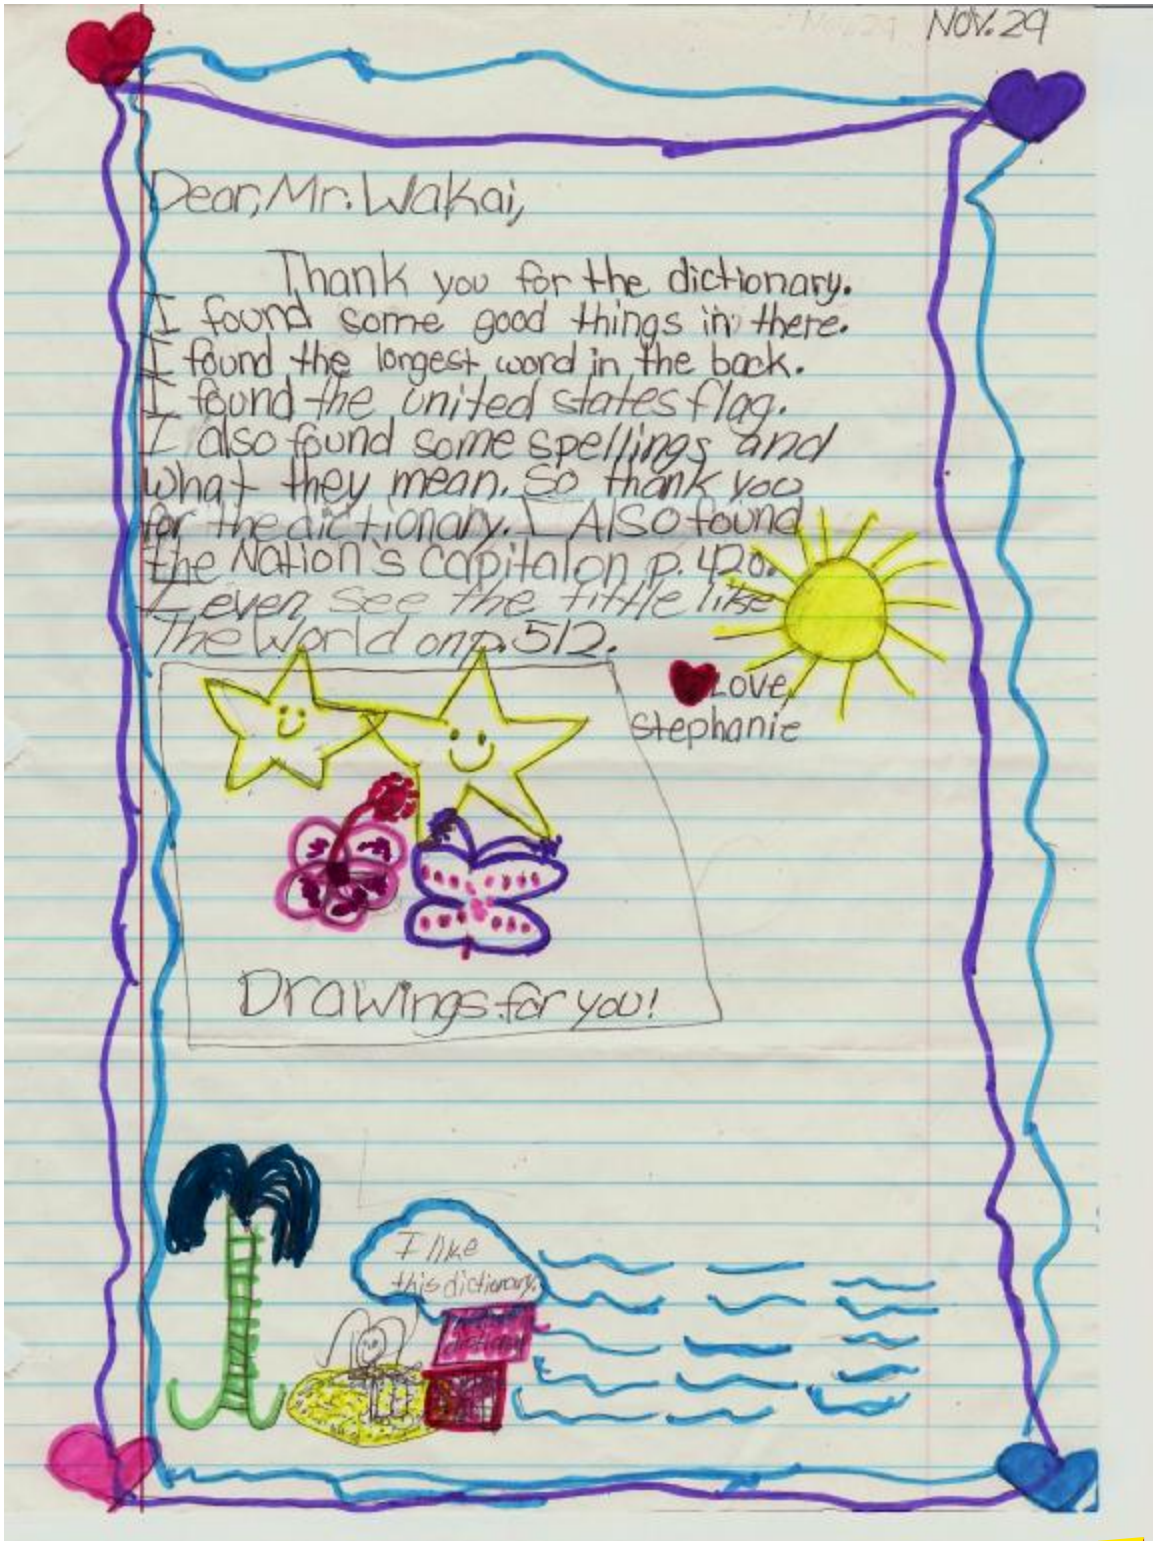 Nov. 29
Dear, Mr. Wakai,
Thank you for the dictionary.
I found some good things in there.
I found the longest word in the back.
I found the united states flag.
I also found some spellings and
what they mean. So thank you
for the dictionary. I Also found
the Nation's capital on p. 420.
I even see the tittle like
The World on p. 512.
Love,
Stephanie
Drawings for you!
I like
this dictionary.